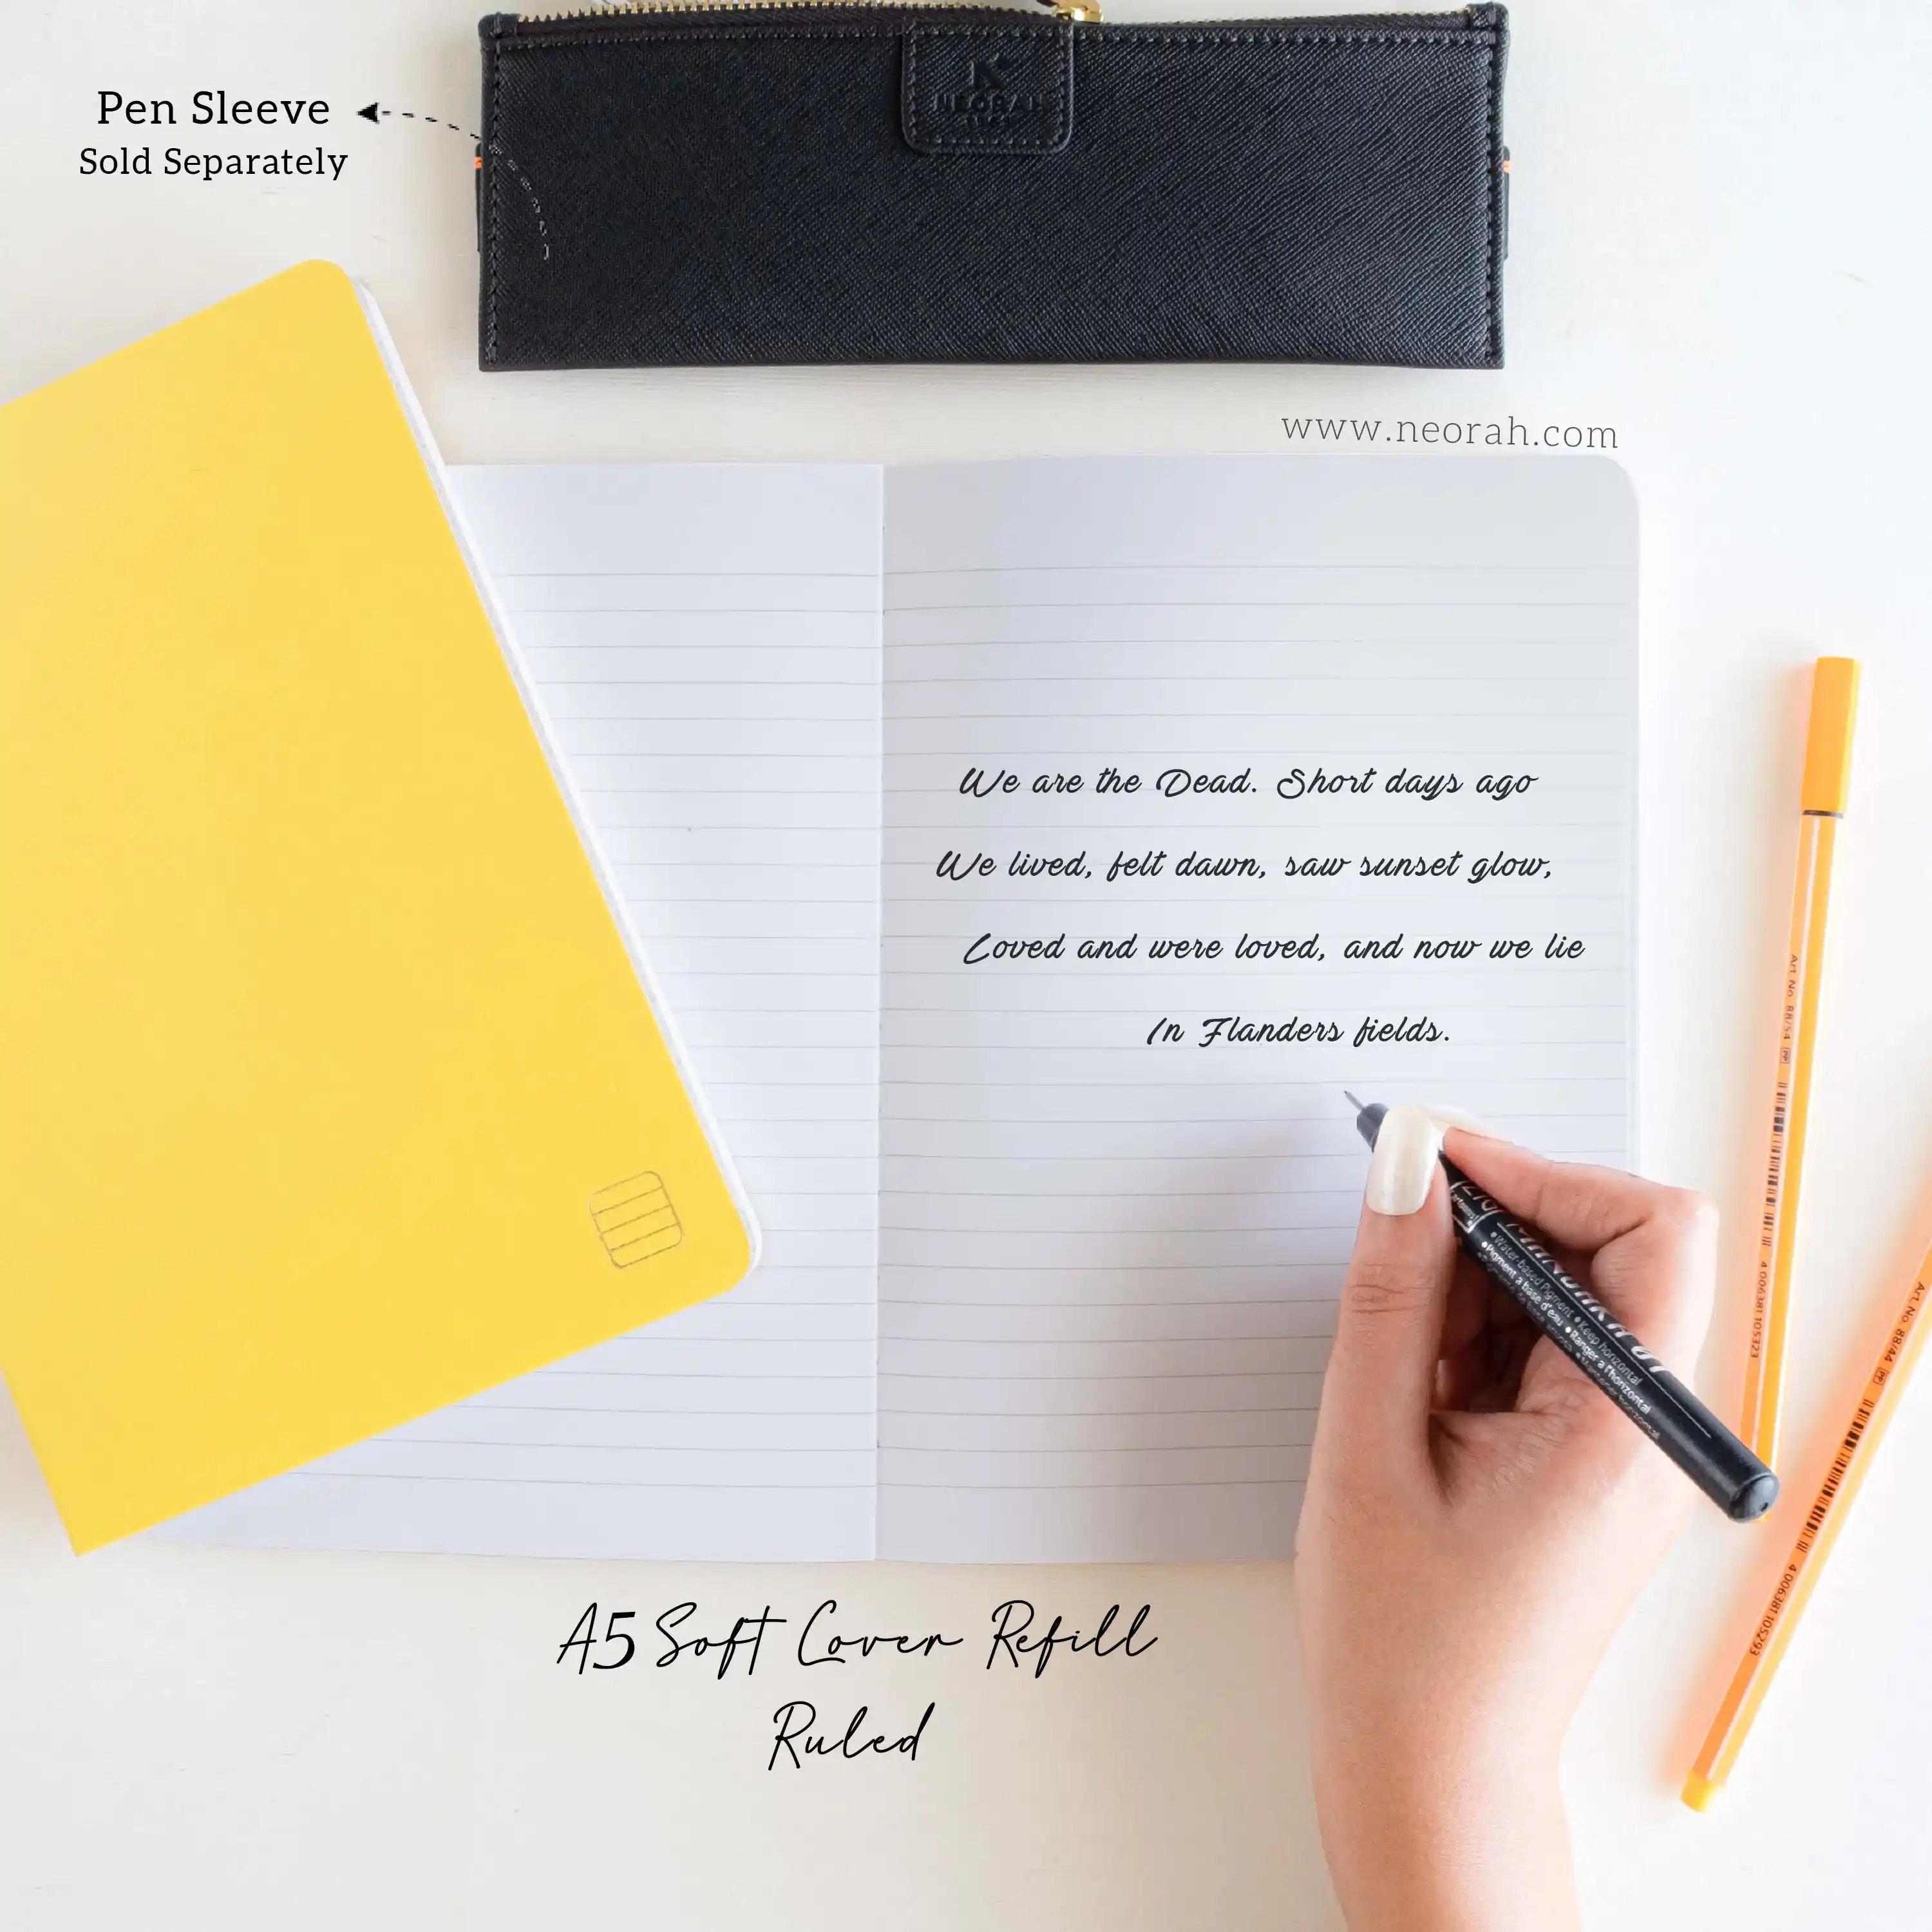 Pen Sleeve
Sold Separately
NEORAH
www.neorah.com
We are the Dead. Short days ago
We lived, felt dawn, saw sunset glow,
Loved and were loved, and now we lie
In Flanders fields.
Art. No. 88/54
4 006381 105323
Art. No. 88/44
4 006381 105293
•Water-based Pigment •Keep horizontal
•Pigment à base d'eau •Ranger à l'horizontal
A5 Soft Cover Refill
Ruled